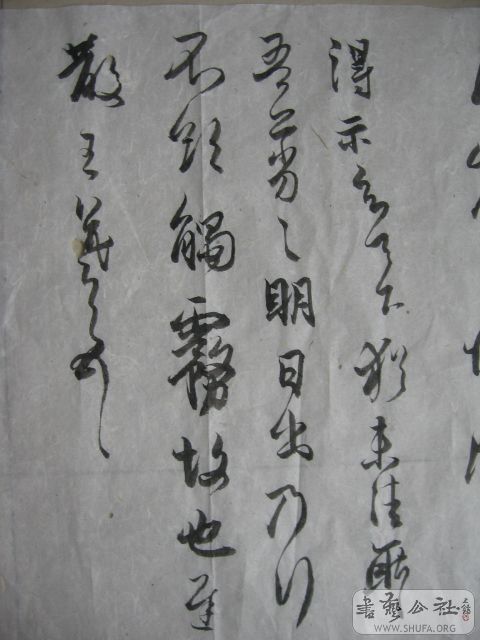 得示知足下猶未佳耿
吾亦劣〻明日出乃行
不欲觸霧故也遲
散王羲之頓首
書藝公社
WWW.SHUFA.ORG